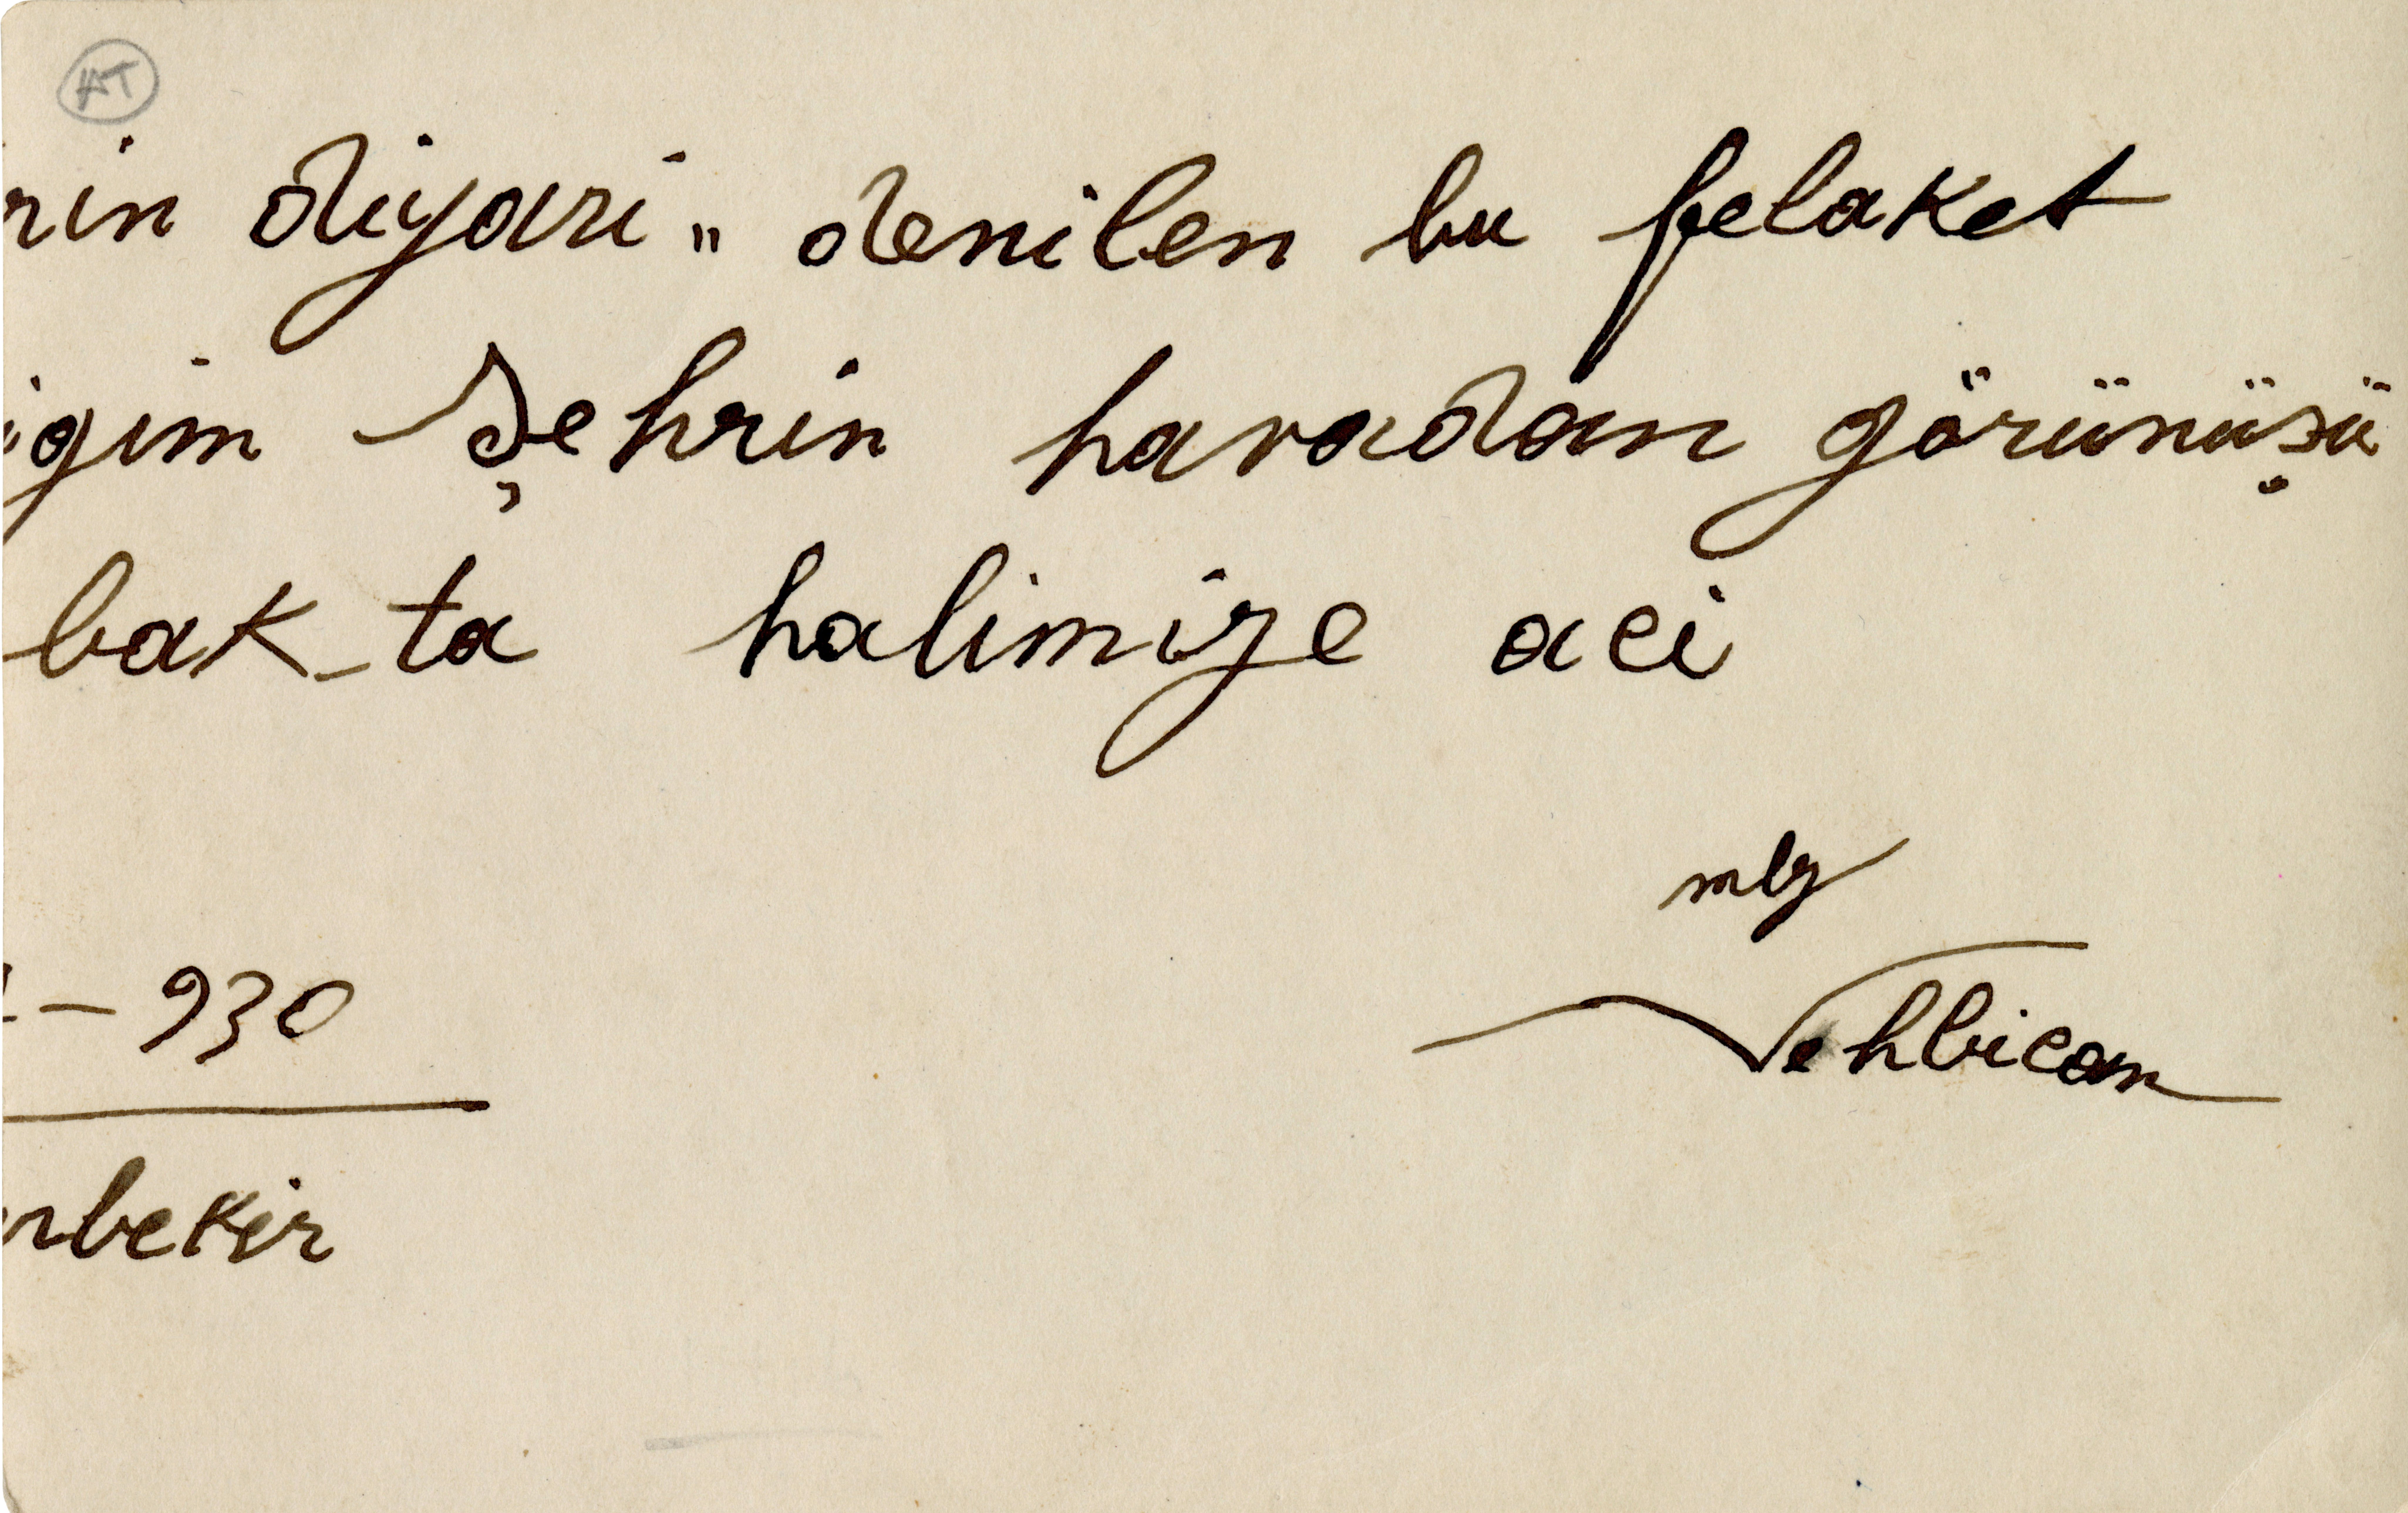 AT
rin diyari„ denilen bu felaket
igim Şehrin havadan görünüşü
bak-ta halimize aci
mlz
- 930
Vehbican
rbekir